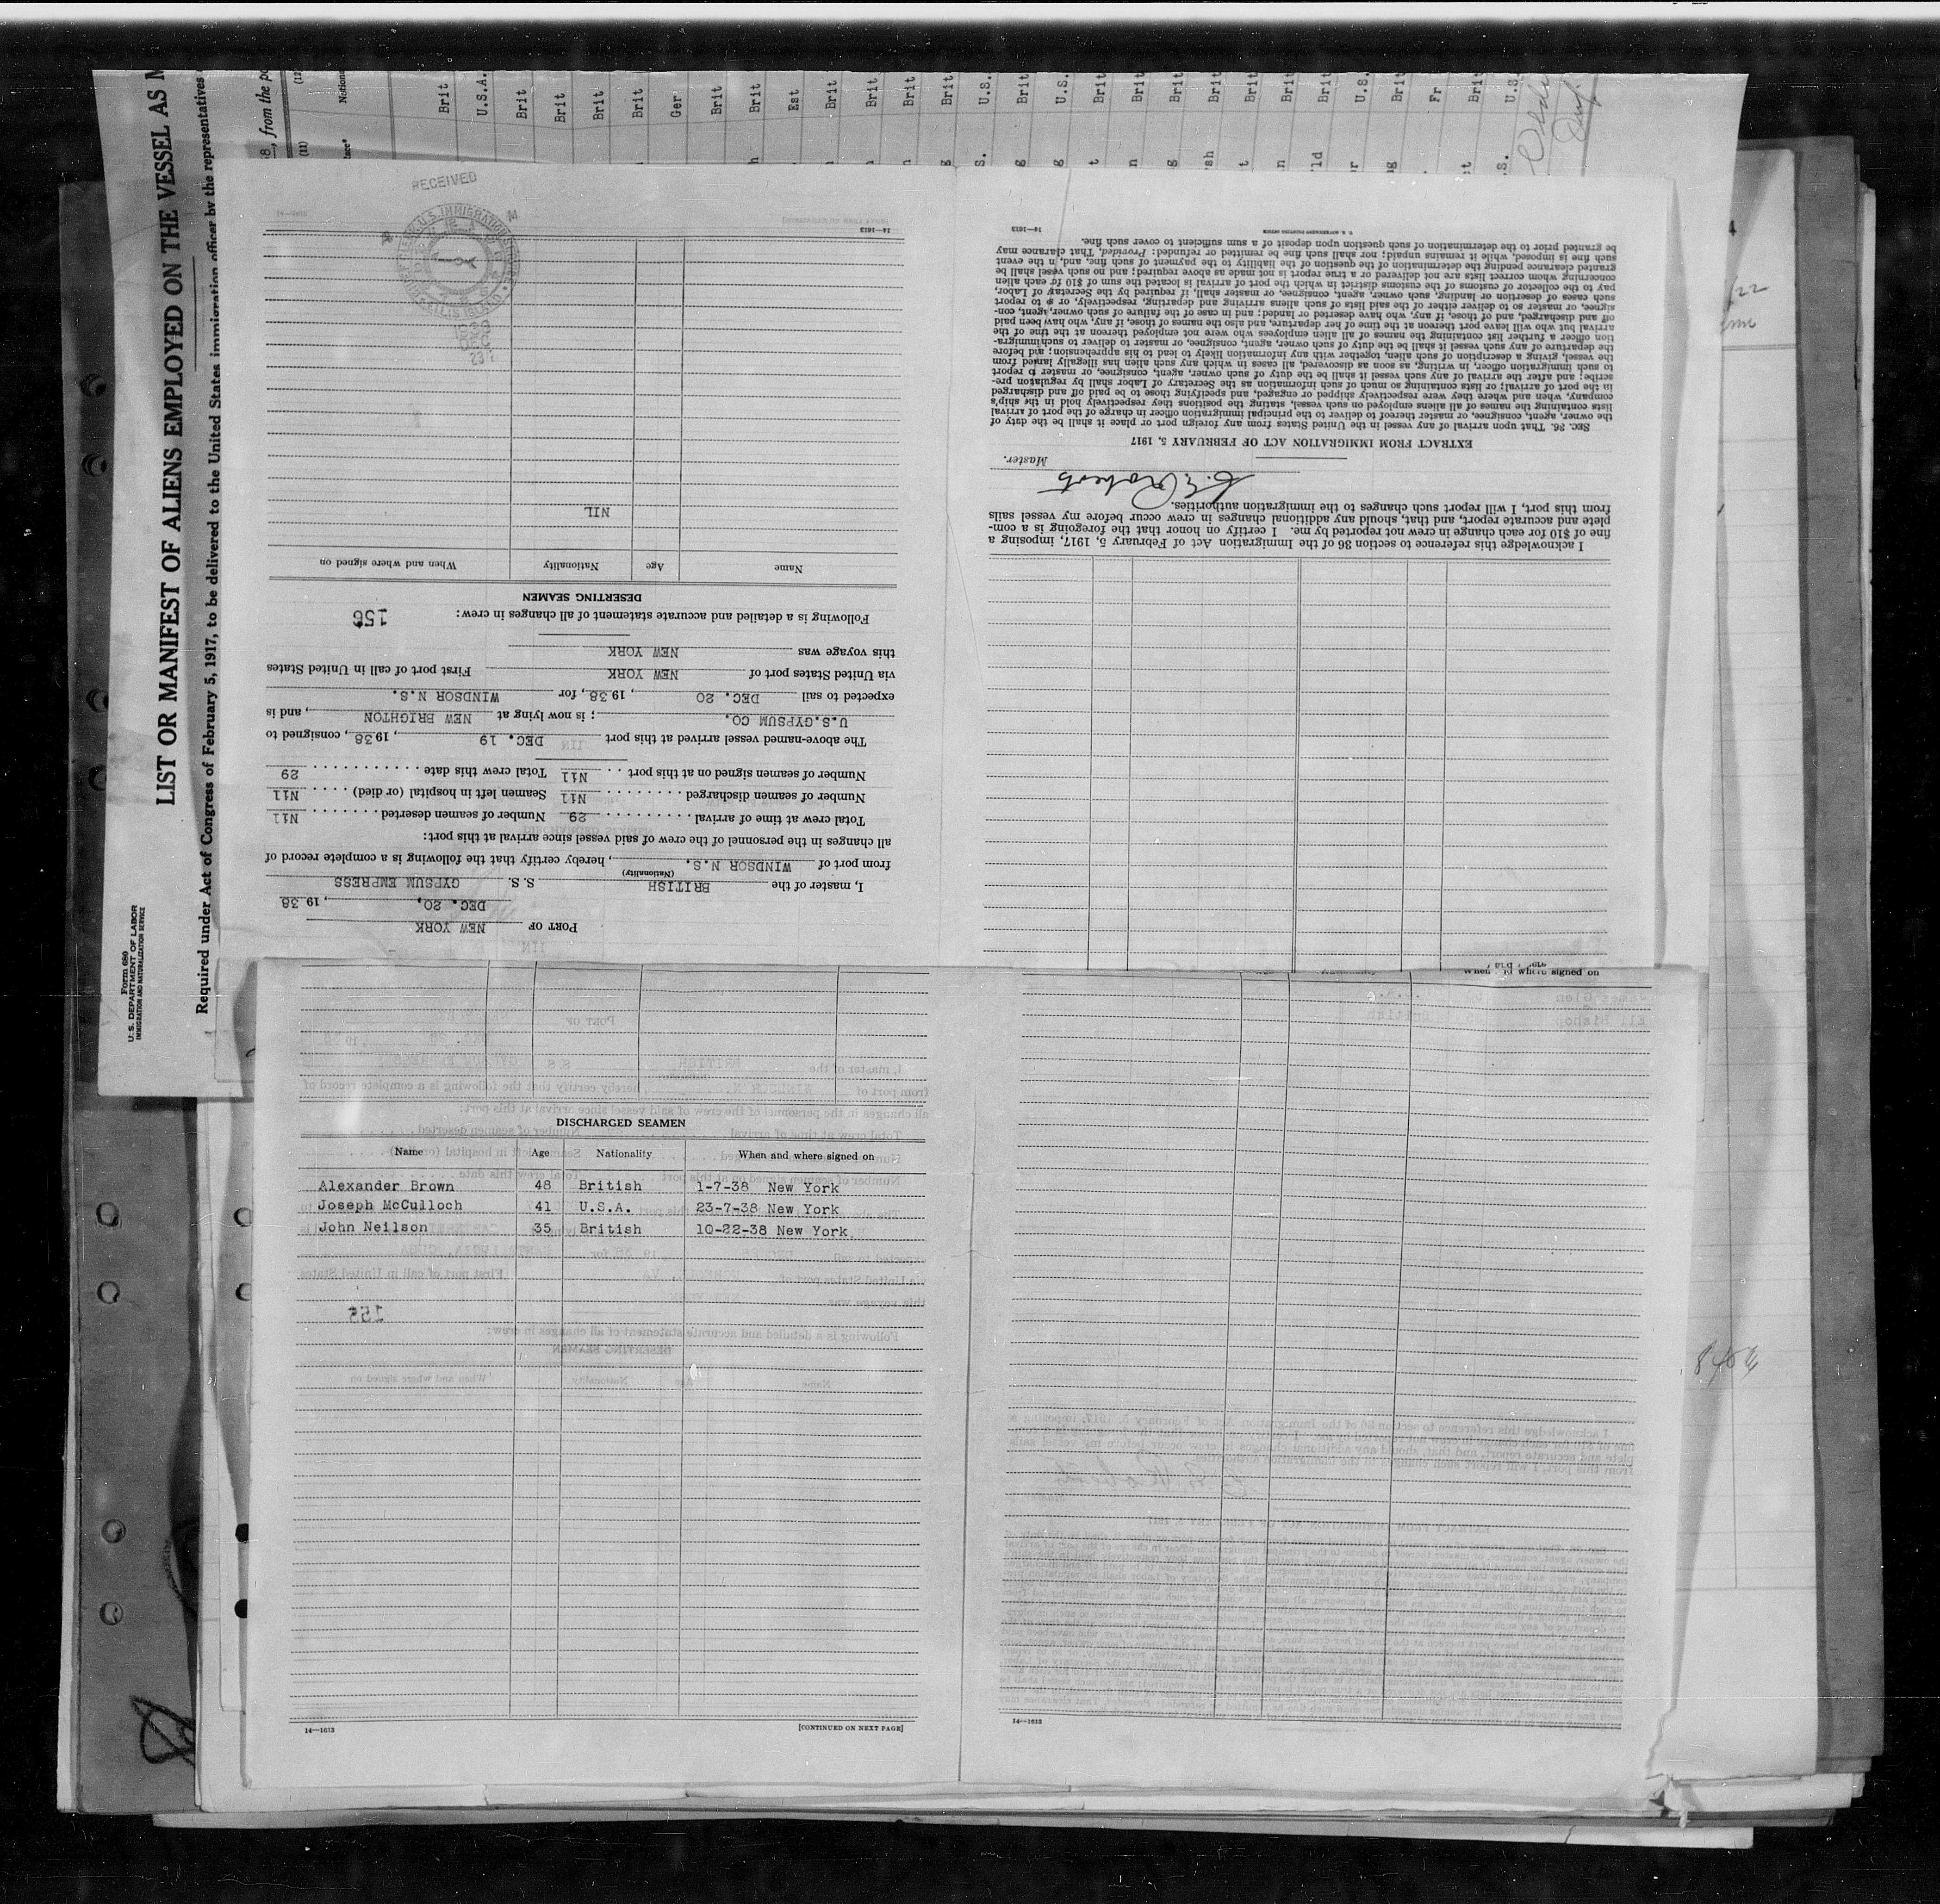 LIST OR MANIFEST OF ALIENS EMPLOYED ON THE VESSEL AS
Required under Act of Congress of February 5, 1917, to be delivered to the United States immigration officer by the representatives
Form 680
U. S. DEPARTMENT OF LABOR
IMMIGRATION AND NATURALIZATION SERVICE
, from the
(11)
(12)
Brit
U.S.A.
Brit
Brit
Brit
Brit
Ger
Brit
Brit
Est
Brit
Brit
Brit
Brit
U.S.
Brit
U.S.
Brit
Brit
Brit
Brit
Brit
Brit
Brit
U.S.
Brit
Fr
Brit
U.S.
PORT OF NEW YORK
DEC. 20, , 1938
I, master of the BRITISH S. S. GYPSUM EMPRESS
(Nationality)
from port of WINDSOR N.S. , hereby certify that the following is a complete record of
all changes in the personnel of the crew of said vessel since arrival at this port:
Total crew at time of arrival 29 Number of seamen deserted Nil
Number of seamen discharged Nil Seamen left in hospital (or died) Nil
Number of seamen signed on at this port Nil Total crew this date 29
The above-named vessel arrived at this port DEC. 19 , 1938, consigned to
U.S.GYPSUM CO. ; is now lying at NEW BRIGHTON , and is
expected to sail DEC. 20 , 1938, for WINDSOR N.S.
via United States port of NEW YORK First port of call in United States
this voyage was NEW YORK
Following is a detailed and accurate statement of all changes in crew: 156
DESERTING SEAMEN
Name Age Nationality When and where signed on
NIL
14—1613
RECEIVED
I acknowledge this reference to section 36 of the Immigration Act of February 5, 1917, imposing a
fine of $10 for each change in crew not reported by me. I certify on honor that the foregoing is a com-
plete and accurate report, and that, should any additional changes in crew occur before my vessel sails
from this port, I will report such changes to the immigration authorities.
Master.
EXTRACT FROM IMMIGRATION ACT OF FEBRUARY 5, 1917
SEC. 36. That upon arrival of any vessel in the United States from any foreign port or place it shall be the duty of
the owner, agent, consignee, or master thereof to deliver to the principal immigration officer in charge of the port of arrival
lists containing the names of all aliens employed on such vessel, stating the positions they respectively hold in the ship's
company, when and where they were respectively shipped or engaged, and specifying those to be paid off and discharged
in the port of arrival; or lists containing so much of such information as the Secretary of Labor shall by regulation pre-
scribe; and after the arrival of any such vessel it shall be the duty of such owner, agent, consignee, or master to report
to such immigration officer, in writing, as soon as discovered, all cases in which any such alien has illegally landed from
the vessel, giving a description of such alien, together with any information likely to lead to his apprehension; and before
the departure of any such vessel it shall be the duty of such owner, agent, consignee, or master to deliver to such immigra-
tion officer a further list containing the names of all alien employees who were not employed thereon at the time of the
arrival but who will leave port thereon at the time of her departure, and also the names of those, if any, who have been paid
off and discharged, and of those, if any, who have deserted or landed; and in case of the failure of such owner, agent, con-
signee, or master so to deliver either of the said lists of such aliens arriving and departing, respectively, or so to report
such cases of desertion or landing, such owner, agent, consignee, or master shall, if required by the Secretary of Labor,
pay to the collector of customs of the customs district in which the port of arrival is located the sum of $10 for each alien
concerning whom correct lists are not delivered or a true report is not made as above required; and no such vessel shall be
granted clearance pending the determination of the question of the liability to the payment of such fine, and, in the event
such fine is imposed, while it remains unpaid; nor shall such fine be remitted or refunded: Provided, That clearance may
be granted prior to the determination of such question upon deposit of a sum sufficient to cover such fine.
14—1613 U. S. GOVERNMENT PRINTING OFFICE
When and where signed on
DISCHARGED SEAMEN
Name Age Nationality When and where signed on
Alexander Brown 48 British 1-7-38 New York
Joseph McCulloch 41 U.S.A. 23-7-38 New York
John Neilson 35 British 10-22-38 New York
14—1613 [CONTINUED ON NEXT PAGE]
14—1613